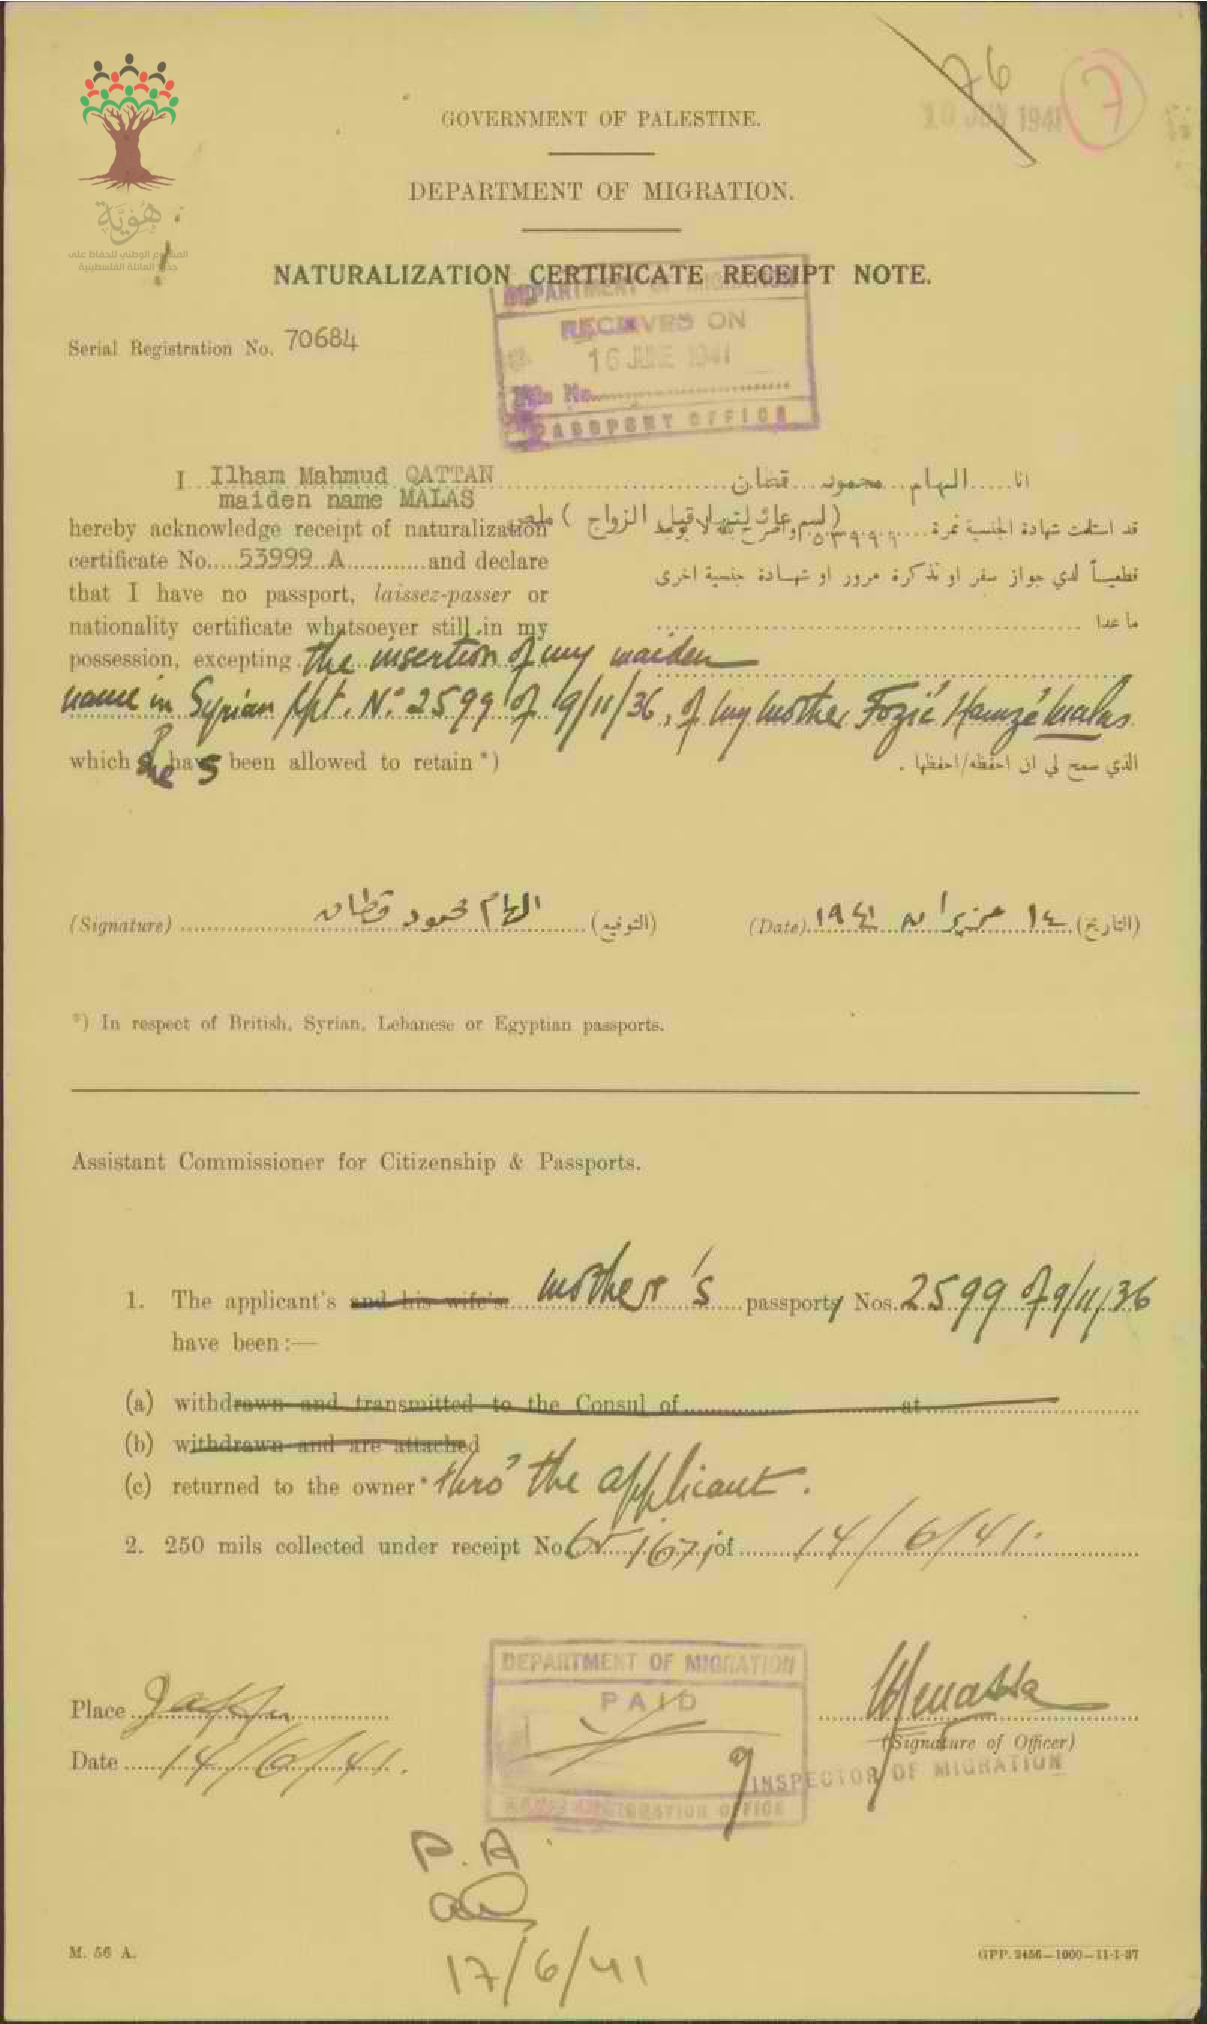 76
10 JUN 1941
7
هُوِيَّة
المشروع الوطني للحفاظ على
جذور العائلة الفلسطينية
GOVERNMENT OF PALESTINE.
DEPARTMENT OF MIGRATION.
NATURALIZATION CERTIFICATE RECEIPT NOTE.
DEPARTMENT OF MIGRATION
RECEIVED ON
16 JUNE 1941
File No.
PASSPORT OFFICE
Serial Registration No. 70684
I Ilham Mahmud QATTAN
maiden name MALAS
hereby acknowledge receipt of naturalization
certificate No. 53999 A and declare
that I have no passport, laissez-passer or
nationality certificate whatsoever still in my
possession, excepting the insertion of my maiden
name in Syrian ppt. No. 2599 of 9/11/36, of my mother Fozié Hamzé Malas
which she has been allowed to retain *)
انا الهام محمود قطان
(اسم عائلتها قبل الزواج) ملص
قد استلمت شهادة الجنسية نمرة ٥٣٩٩٩ واصرح بانه لا يوجد
قطعياً لدي جواز سفر او تذكرة مرور او شهادة جنسية اخرى
ما عدا
الذي سمح لي ان احفظه/احفظها .
(Signature) الهام محمود قطان (التوقيع)
(Date) ١٤ حزيران ١٩٤١ (التاريخ)
*) In respect of British, Syrian, Lebanese or Egyptian passports.
Assistant Commissioner for Citizenship & Passports.
1. The applicant's and his wife's mother's passport Nos. 2599 of 9/11/36
have been :—
(a) withdrawn and transmitted to the Consul of at
(b) withdrawn and are attached
(c) returned to the owner * thro' the applicant.
2. 250 mils collected under receipt No of 14/6/41.
Place Jaffa
Date 14/6/41.
DEPARTMENT OF MIGRATION
PAID
OFFICE
(Signature of Officer)
INSPECTOR OF MIGRATION
P.A
17/6/41
M. 56 A.
GPP. 2456—1000—11-1-37